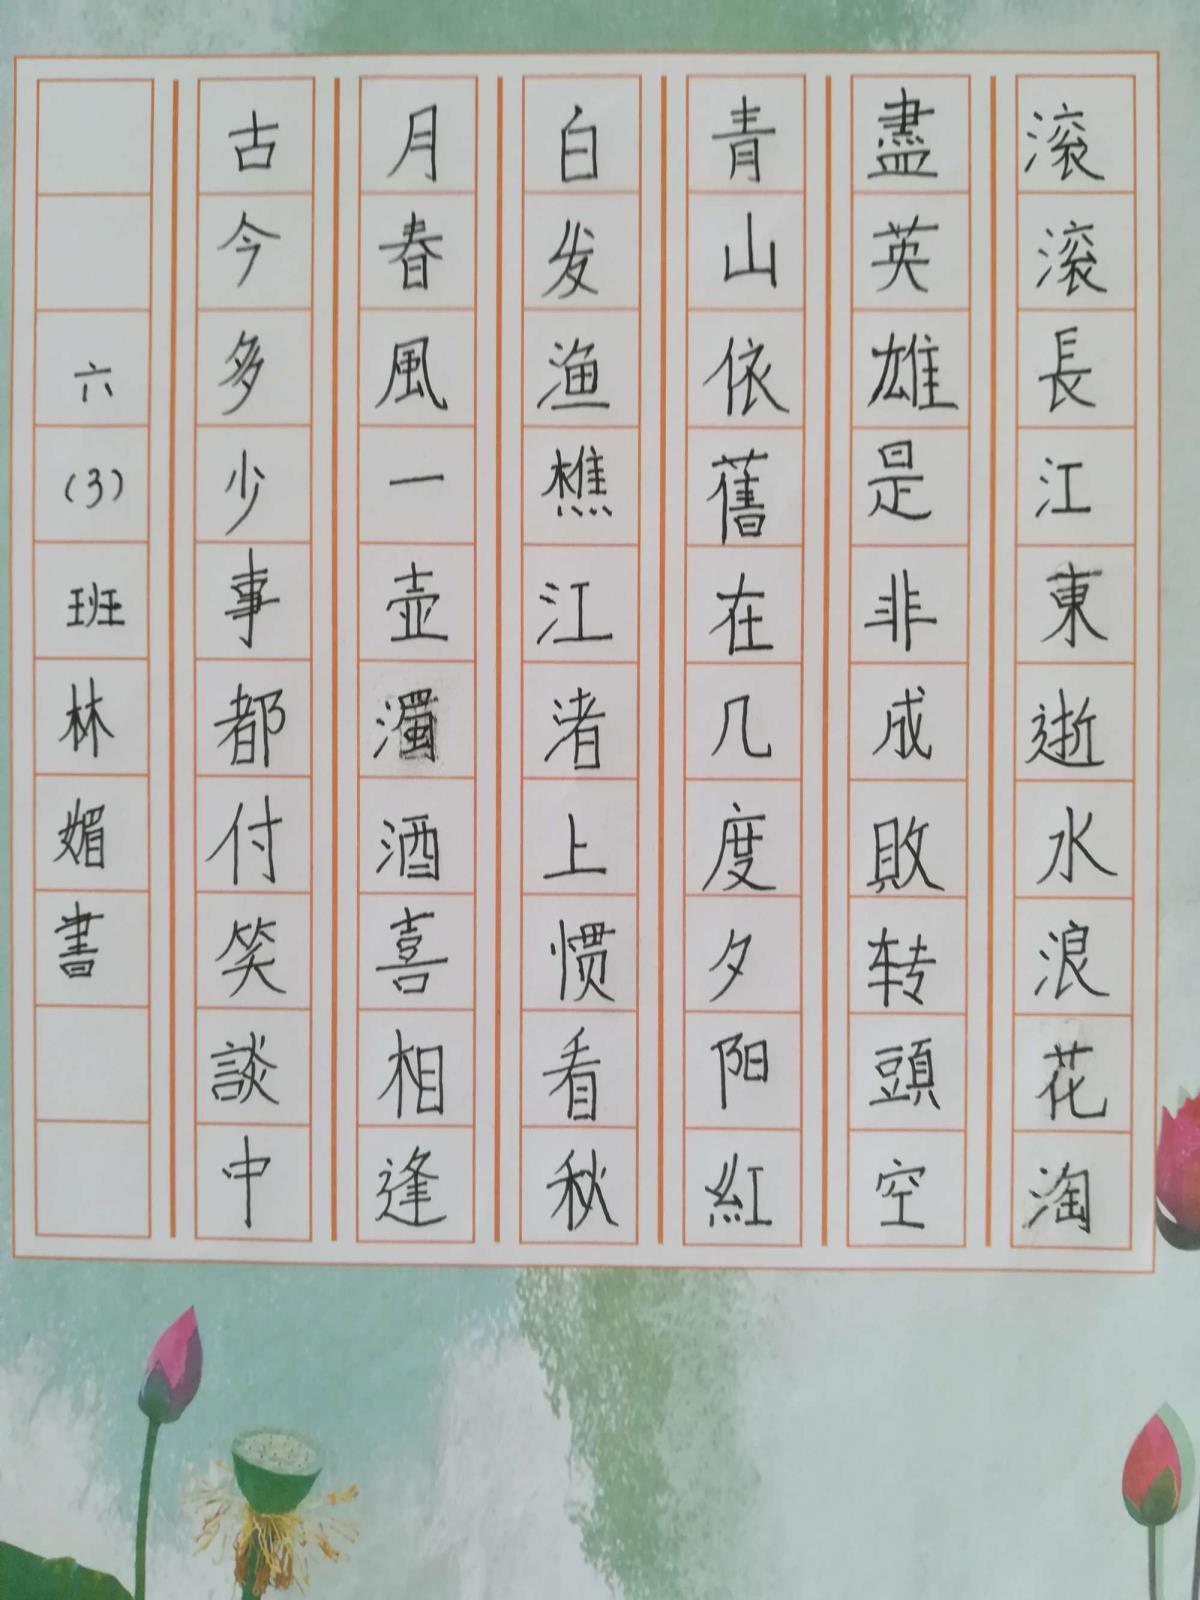 滚滚長江東逝水浪花淘
盡英雄是非成敗转頭空
青山依舊在几度夕阳紅
白发渔樵江渚上惯看秋
月春風一壶濁酒喜相逢
古今多少事都付笑談中
六(3)班林媚書